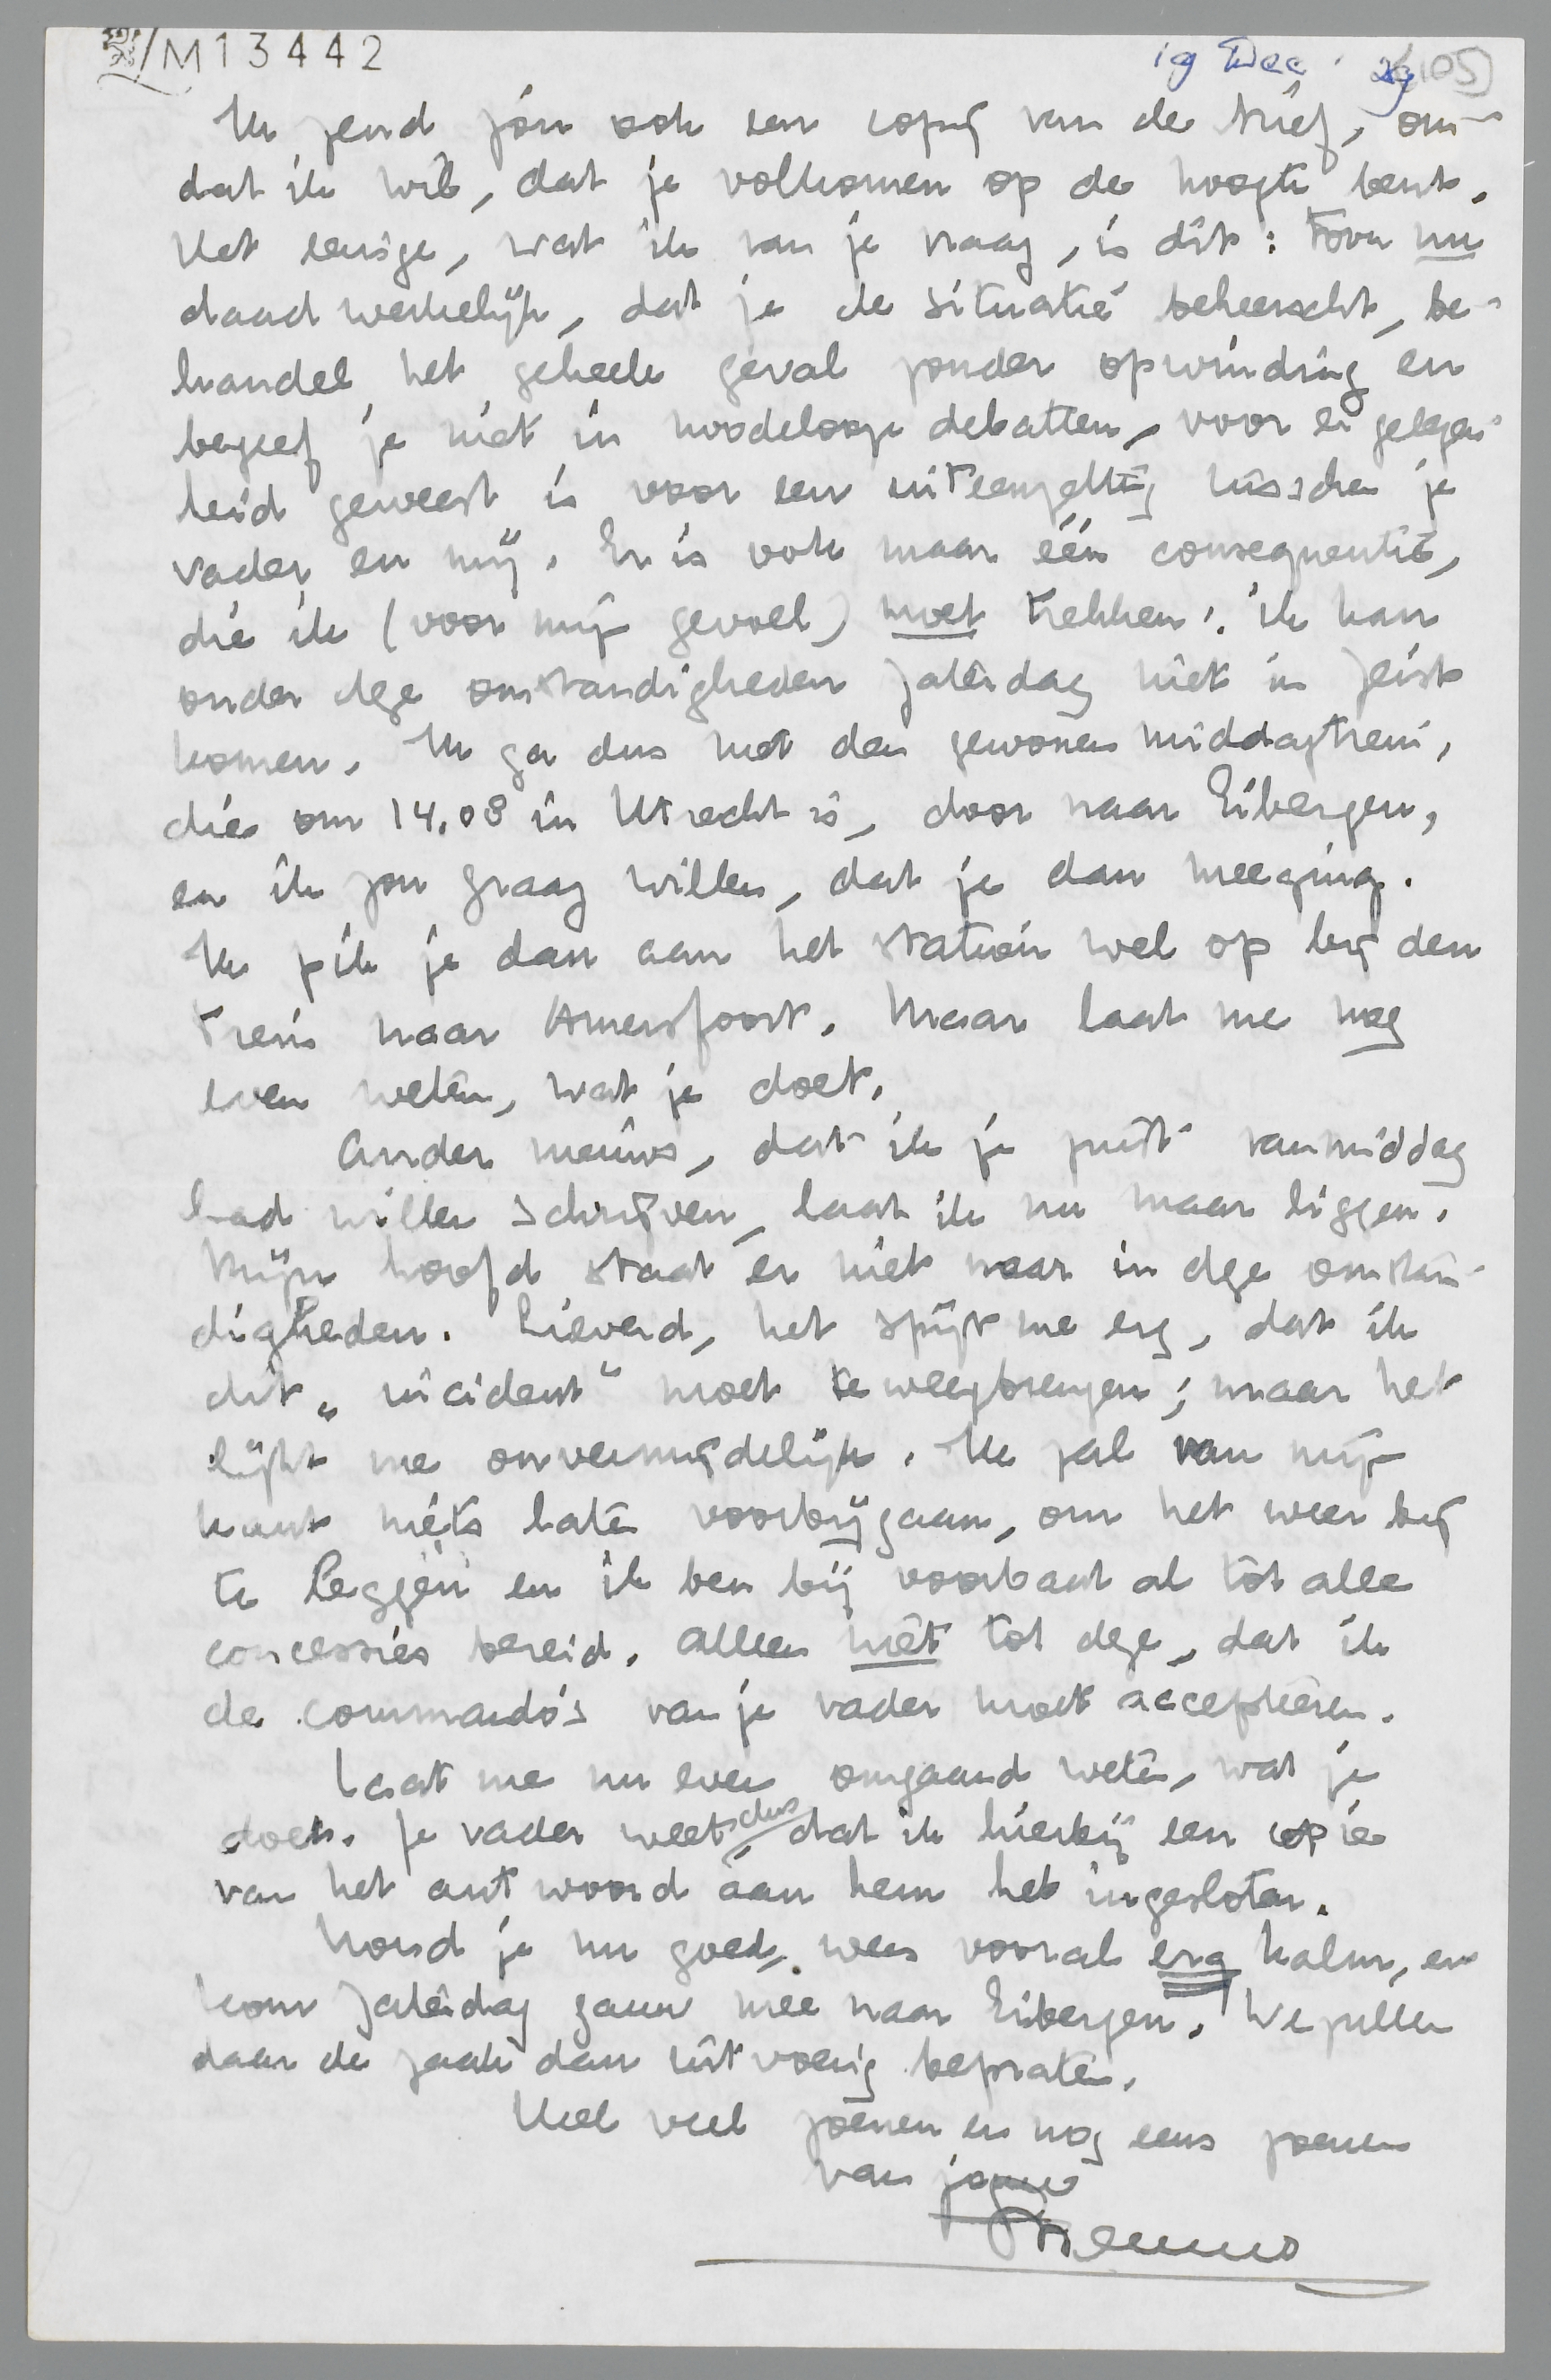 M13442
19 Dec. 29
Ik zend jou ook een copij van de brief, om-
dat ik wil, dat je volkomen op de hoogte bent.
Het eenige, wat ik van je vraag, is dit: Toon nu
daadwerkelijk, dat je de situatie beheerscht, be-
handel het geheele geval zonder opwinding en
begeef je niet in noodelooze debatten, voor er gelegen-
heid geweest is voor een uiteenzetting tusschen je
vader en mij. Er is ook maar één consequentie,
die ik (voor mijn gevoel) moet trekken: ik kan
onder deze omstandigheden Zaterdag niet in Zeist
komen. Ik ga dus met den gewonen middagtrein,
die om 14.08 in Utrecht is, door naar Eibergen,
en ik zou graag willen, dat je dan meeging.
Ik pik je dan aan het station wel op bij den
trein naar Amersfoort. Maar laat me nog
even weten, wat je doet.
Ander nieuws, dat ik je juist vanmiddag
had willen schrijven, laat ik nu maar liggen.
Mijn hoofd staat er niet naar in deze omstan-
digheden. Lieverd, het spijt me erg, dat ik
dit „incident" moet teweegbrengen; maar het
lijkt me onvermijdelijk. Ik zal van mijn
kant niets laten voorbijgaan, om het weer bij
te leggen en ik ben bij voorbaat al tot alle
concessies bereid. Alleen niet tot deze, dat ik
de commando's van je vader moet accepteeren.
Laat me nu even omgaand weten, wat je
doet. Je vader weet dus, dat ik hierbij een copie
van het antwoord aan hem heb ingesloten.
Houd je nu goed, wees vooral erg kalm, en
kom Zaterdag gauw mee naar Eibergen. We zullen
daar de zaak dan uitvoerig bepraten.
Heel veel zoenen en nog eens zoenen
van jouw
Menno